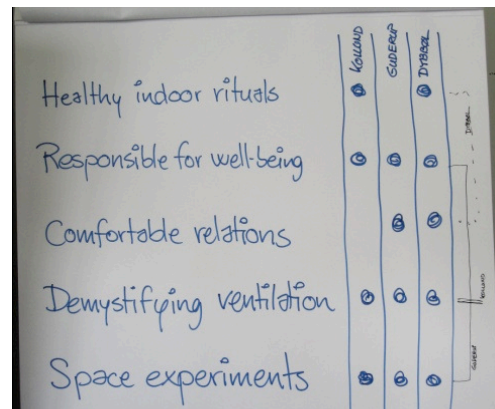 KOLLUND
GUDERUP
DYBBØL
Healthy indoor rituals
Responsible for well-being
Comfortable relations
Demystifying ventilation
Space experiments
DYBBØL
KOLLUND
GUDERUP